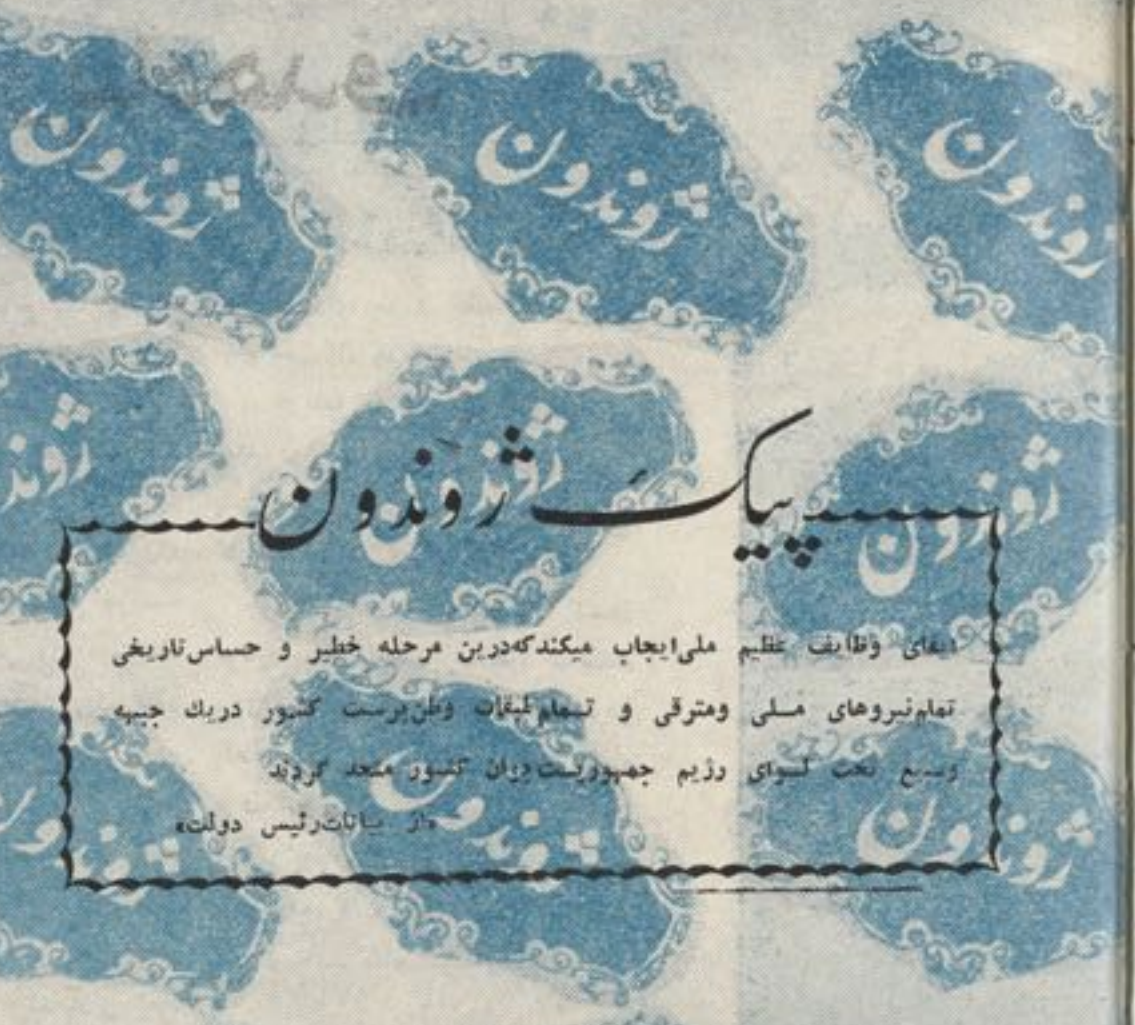 ژوندون ژوندون ژوندون
ژوندون ژوندون ژوند
پیک ژوندون
ایفای وظایف عظیم ملی ایجاب میکند که درین مرحله خطیر و حساس تاریخی
تمام نیروهای ملی ومترقی و تمام طبقات وطن‌پرست کشور دریک جبهه
وسیع تحت لوای رژیم جمهوریت جوان کشور متحد گردند
«از بیانات رئیس دولت»
ژوندون ژوندون ژوندون